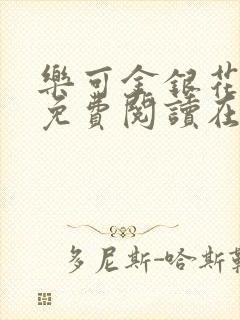 樂可金銀花
免費閱讀在
多尼斯-哈斯勒